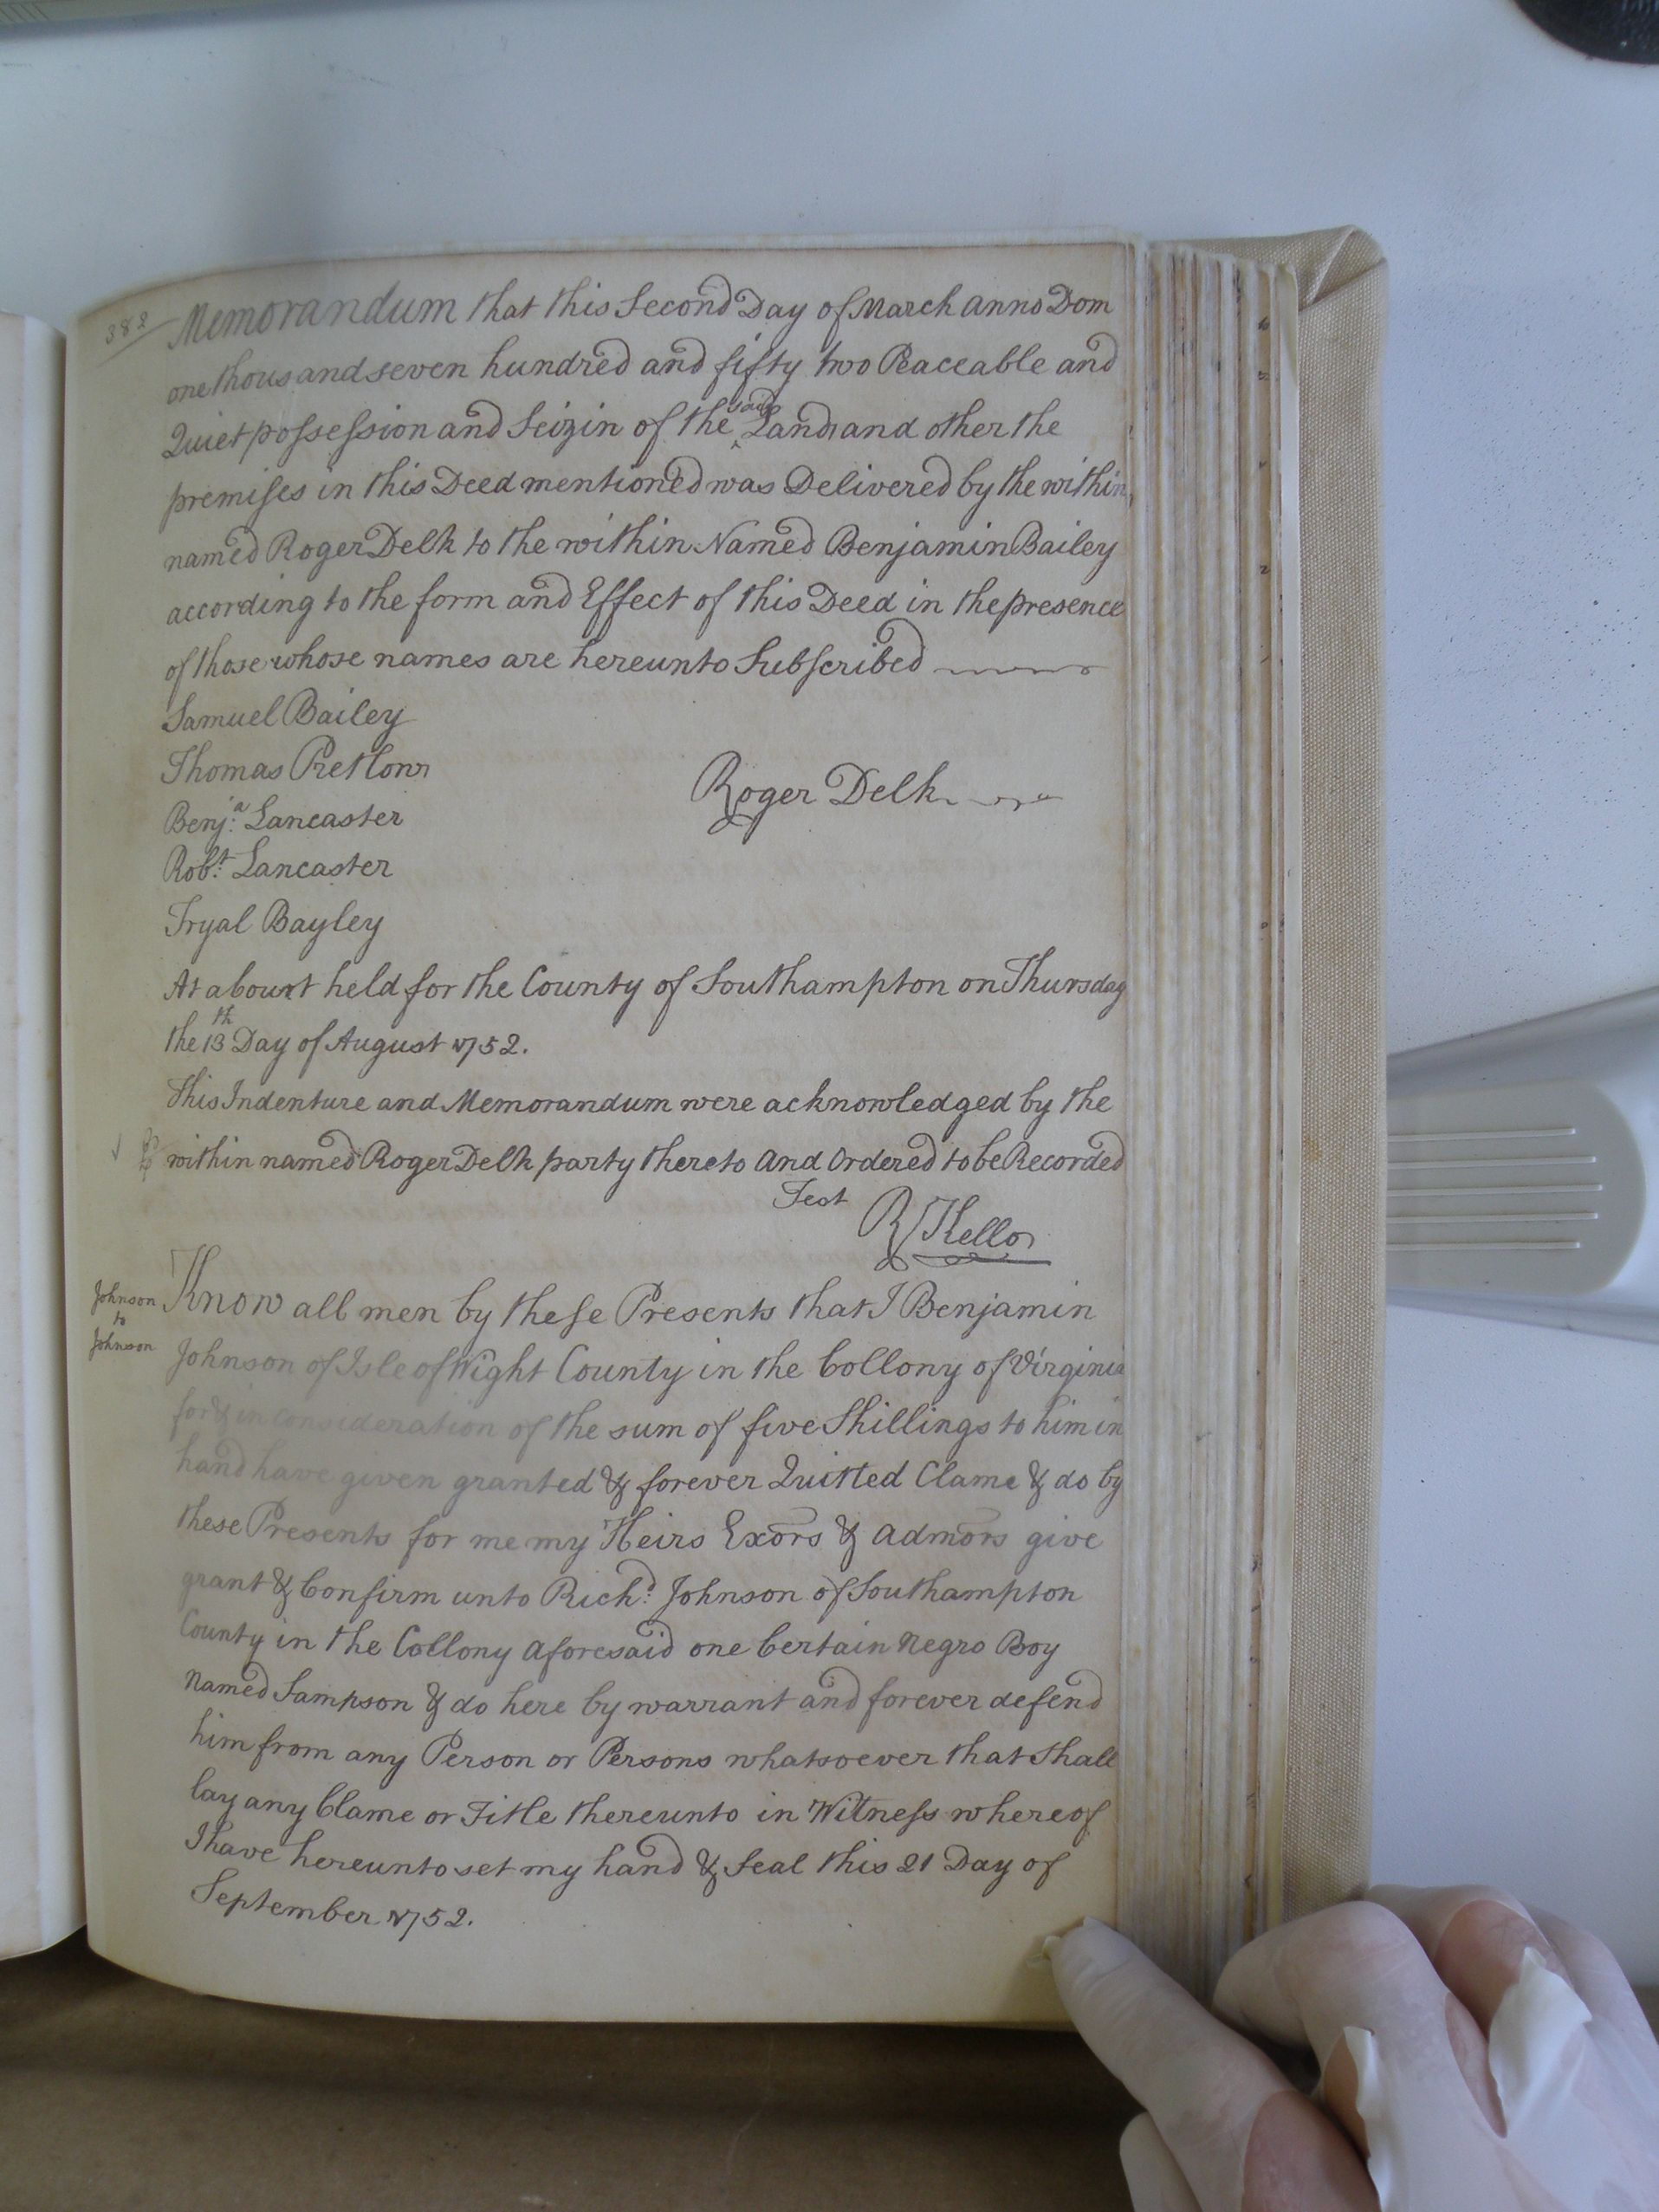 382
Memorandum that this Second Day of March anno Dom
one thousand seven hundred and fifty two Peaceable and
Quiet possession and Seizin of the said Land and other the
premises in this Deed mentioned was Delivered by the within
named Roger Delk to the within Named Benjamin Bailey
according to the form and Effect of this Deed in the presence
of those whose names are hereunto Subscribed
Samuel Bailey
Thomas Pretlow
Roger Delk
Benj:a Lancaster
Rob:t Lancaster
Tryal Bayley
At a Court held for the County of Southampton on Thursday
the 13th Day of August 1752.
This Indenture and Memorandum were acknowledged by the
within named Roger Delk party thereto and Ordered to be Recorded
Test R Kello
Johnson
to
Johnson
Know all men by these Presents that I Benjamin
Johnson of Isle of Wight County in the Collony of Virginia
for & in consideration of the sum of five Shillings to him in
hand have given granted & forever Quitted Clame & do by
these Presents for me my Heirs Exors & admors give
grant & Confirm unto Rich:d Johnson of Southampton
County in the Collony aforesaid one Certain Negro Boy
Named Sampson & do here by warrant and forever defend
him from any Person or Persons whatsoever that Shall
lay any Clame or Title thereunto in Witness whereof
I have hereunto set my hand & Seal this 21 Day of
September 1752.